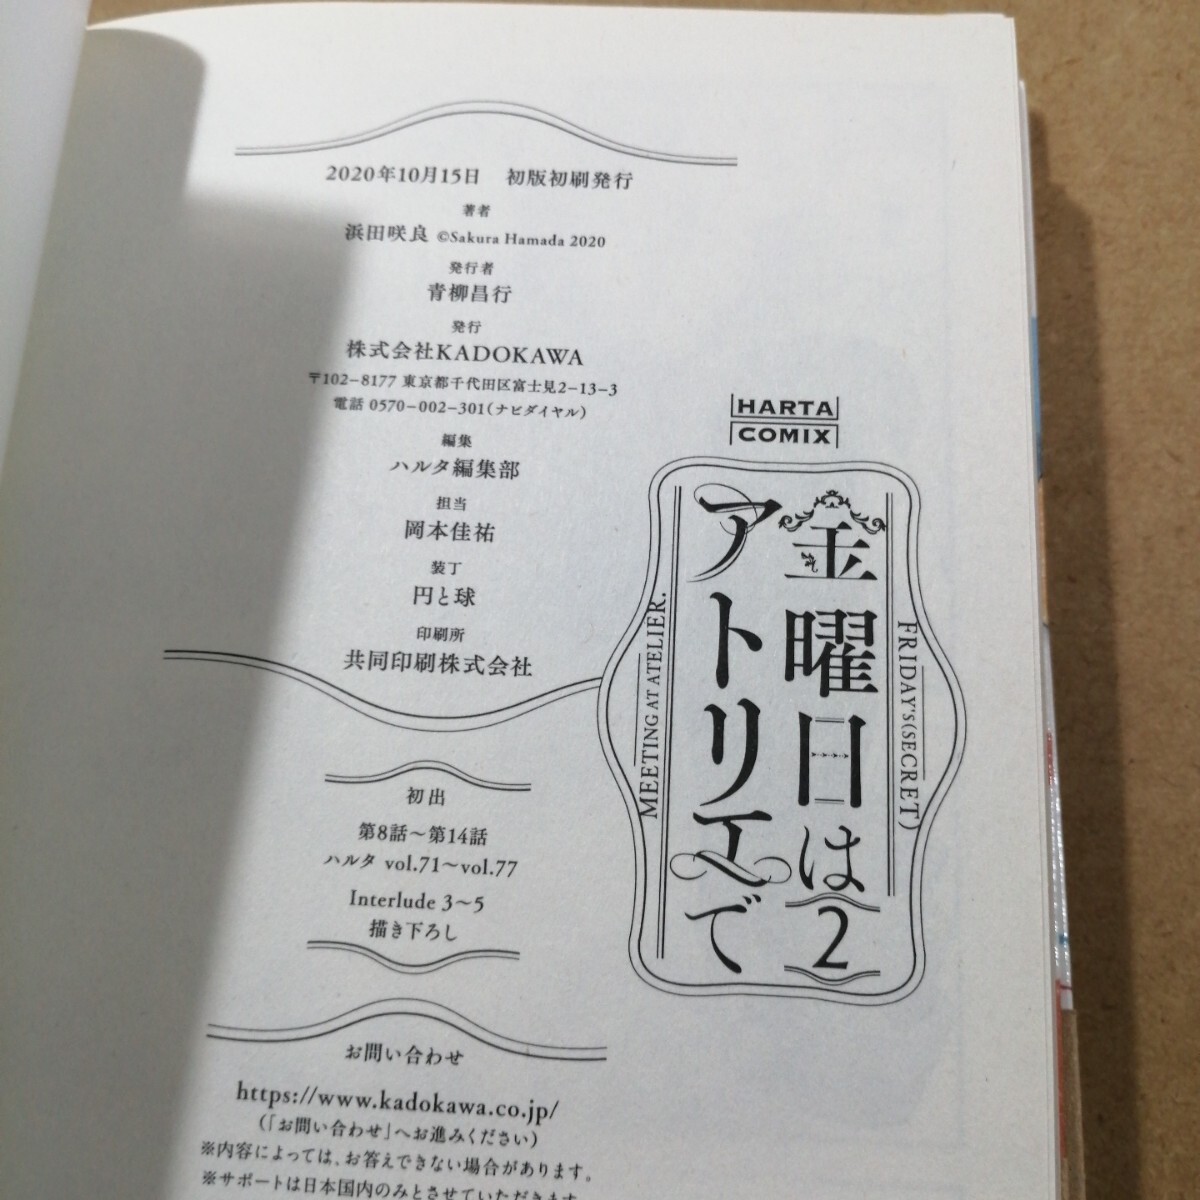 2020年10月15日　初版初刷発行
著者
浜田咲良 ©Sakura Hamada 2020
発行者
青柳昌行
発行
株式会社KADOKAWA
〒102-8177 東京都千代田区富士見2-13-3
電話 0570-002-301(ナビダイヤル)
編集
ハルタ編集部
担当
岡本佳祐
装丁
円と球
印刷所
共同印刷株式会社
初出
第8話〜第14話
ハルタ vol.71〜vol.77
Interlude 3〜5
描き下ろし
お問い合わせ
https://www.kadokawa.co.jp/
(「お問い合わせ」へお進みください)
※内容によっては、お答えできない場合があります。
※サポートは日本国内のみとさせていただきます。
HARTA
COMIX
FRIDAY'S(SECRET)
金曜日は2
アトリエで
MEETING AT ATELIER.